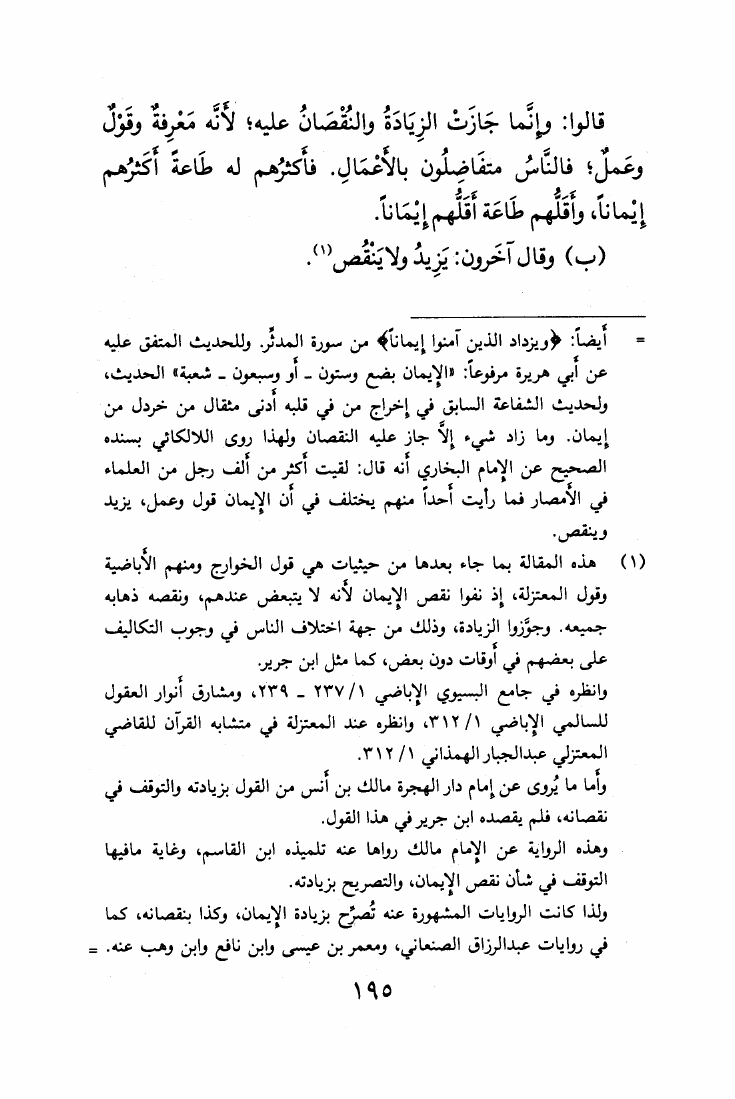 قالوا: وإنَّما جَازَتْ الزِيَادَةُ والنُقْصَانُ عليه؛ لأَنَّه مَعْرِفةٌ وقَوْلٌ
وعَملٌ؛ فالنَّاسُ متفَاضِلُون بالأَعْمَالِ. فأَكثرُهم له طَاعةً أَكثرُهم
إيْماناً، وأَقلُّهم طَاعَة أَقلُّهم إيْمَاناً.
(ب) وقال آخَرون: يَزِيدُ ولا يَنْقُص(١).
= أيضاً: ﴿ويزداد الذين آمنوا إيماناً﴾ من سورة المدثِّر. وللحديث المتفق عليه
عن أبي هريرة مرفوعاً: «الإيمان بضع وستون - أو وسبعون - شعبة» الحديث،
ولحديث الشفاعة السابق في إخراج من في قلبه أدنى مثقال من خردل من
إيمان. وما زاد شيء إلاَّ جاز عليه النقصان ولهذا روى اللالكائي بسنده
الصحيح عن الإمام البخاري أنه قال: لقيت أكثر من ألف رجل من العلماء
في الأمصار فما رأيت أحداً منهم يختلف في أن الإيمان قول وعمل، يزيد
وينقص.
(١) هذه المقالة بما جاء بعدها من حيثيات هي قول الخوارج ومنهم الأباضية
وقول المعتزلة، إذ نفوا نقص الإيمان لأنه لا يتبعض عندهم، ونقصه ذهابه
جميعه. وجوَّزوا الزيادة، وذلك من جهة اختلاف الناس في وجوب التكاليف
على بعضهم في أوقات دون بعض، كما مثل ابن جرير.
وانظره في جامع البسيوي الإباضي ١/ ٢٣٧ - ٢٣٩، ومشارق أنوار العقول
للسالمي الإباضي ١/ ٣١٢، وانظره عند المعتزلة في متشابه القرآن للقاضي
المعتزلي عبدالجبار الهمذاني ١/ ٣١٢.
وأما ما يُروى عن إمام دار الهجرة مالك بن أنس من القول بزيادته والتوقف في
نقصانه، فلم يقصده ابن جرير في هذا القول.
وهذه الرواية عن الإمام مالك رواها عنه تلميذه ابن القاسم، وغاية مافيها
التوقف في شأن نقص الإيمان، والتصريح بزيادته.
ولذا كانت الروايات المشهورة عنه تُصرِّح بزيادة الإيمان، وكذا بنقصانه، كما
في روايات عبدالرزاق الصنعاني، ومعمر بن عيسى وابن نافع وابن وهب عنه. =
١٩٥